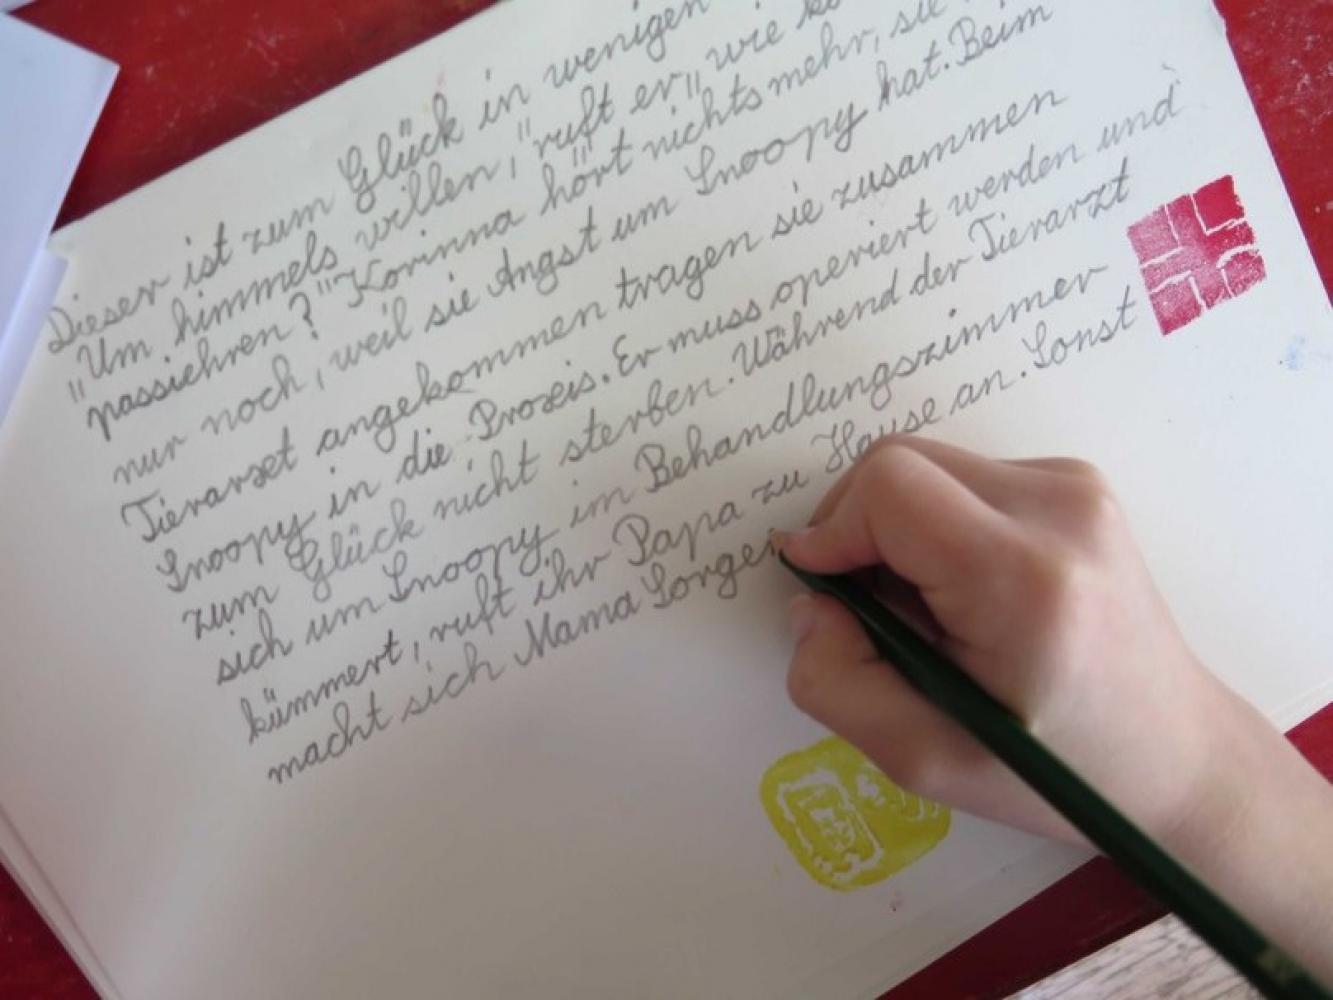 Dieser ist zum Glück in wenigen
"Um himmels willen," ruft er, "wie
passiehren?" Korinna hört nichts mehr, sie
nur noch, weil sie Angst um Snoopy hat. Beim
Tierarset angekommen tragen sie zusammen
Snoopy in die Proxis. Er muss operiert werden und
zum Glück nicht sterben. Während der Tierarzt
sich um Snoopy im Behandlungszimmer
kümmert, ruft ihr Papa zu Hause an. Sonst
macht sich Mama Sorgen